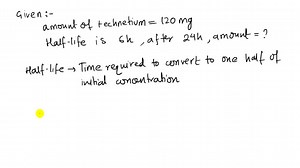 Given :-
amount of technetium = 120 mg
Half-life is 6h , after 24h , amount = ?
Half-life → Time required to convert to one half of
initial concentration